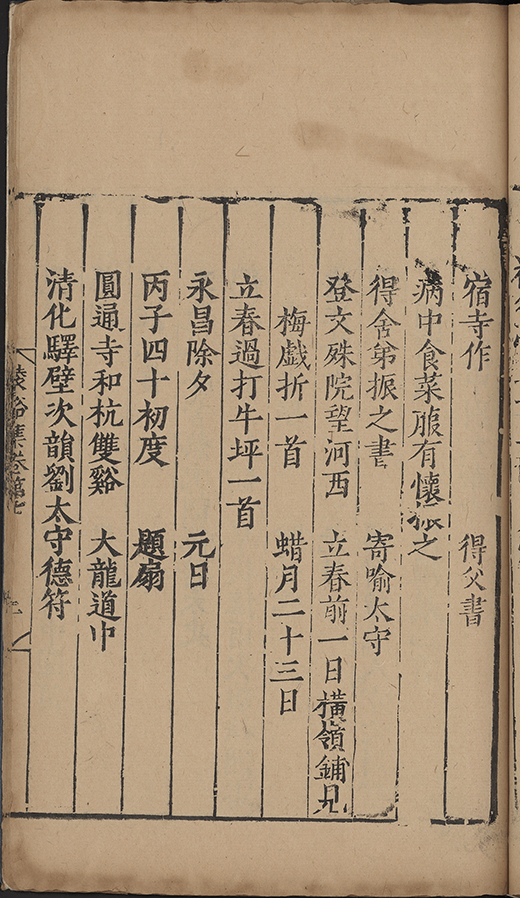 宿寺作　得父書
病中食菜服有懷振之
得舍弟振之書　寄喻太守
登文殊院望河西　立春前一日橫嶺鋪見
梅戲折一首　蜡月二十三日
立春過打牛坪一首
永昌除夕　元日
丙子四十初度　題扇
圓通寺和杭雙谿　大龍道中
清化驛壁次韻劉太守德符
谿集卷第七